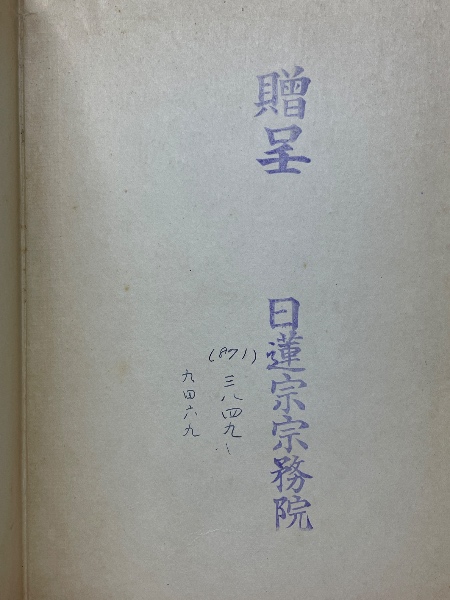 贈呈
日蓮宗宗務院
(871)
三八四九
九四六九